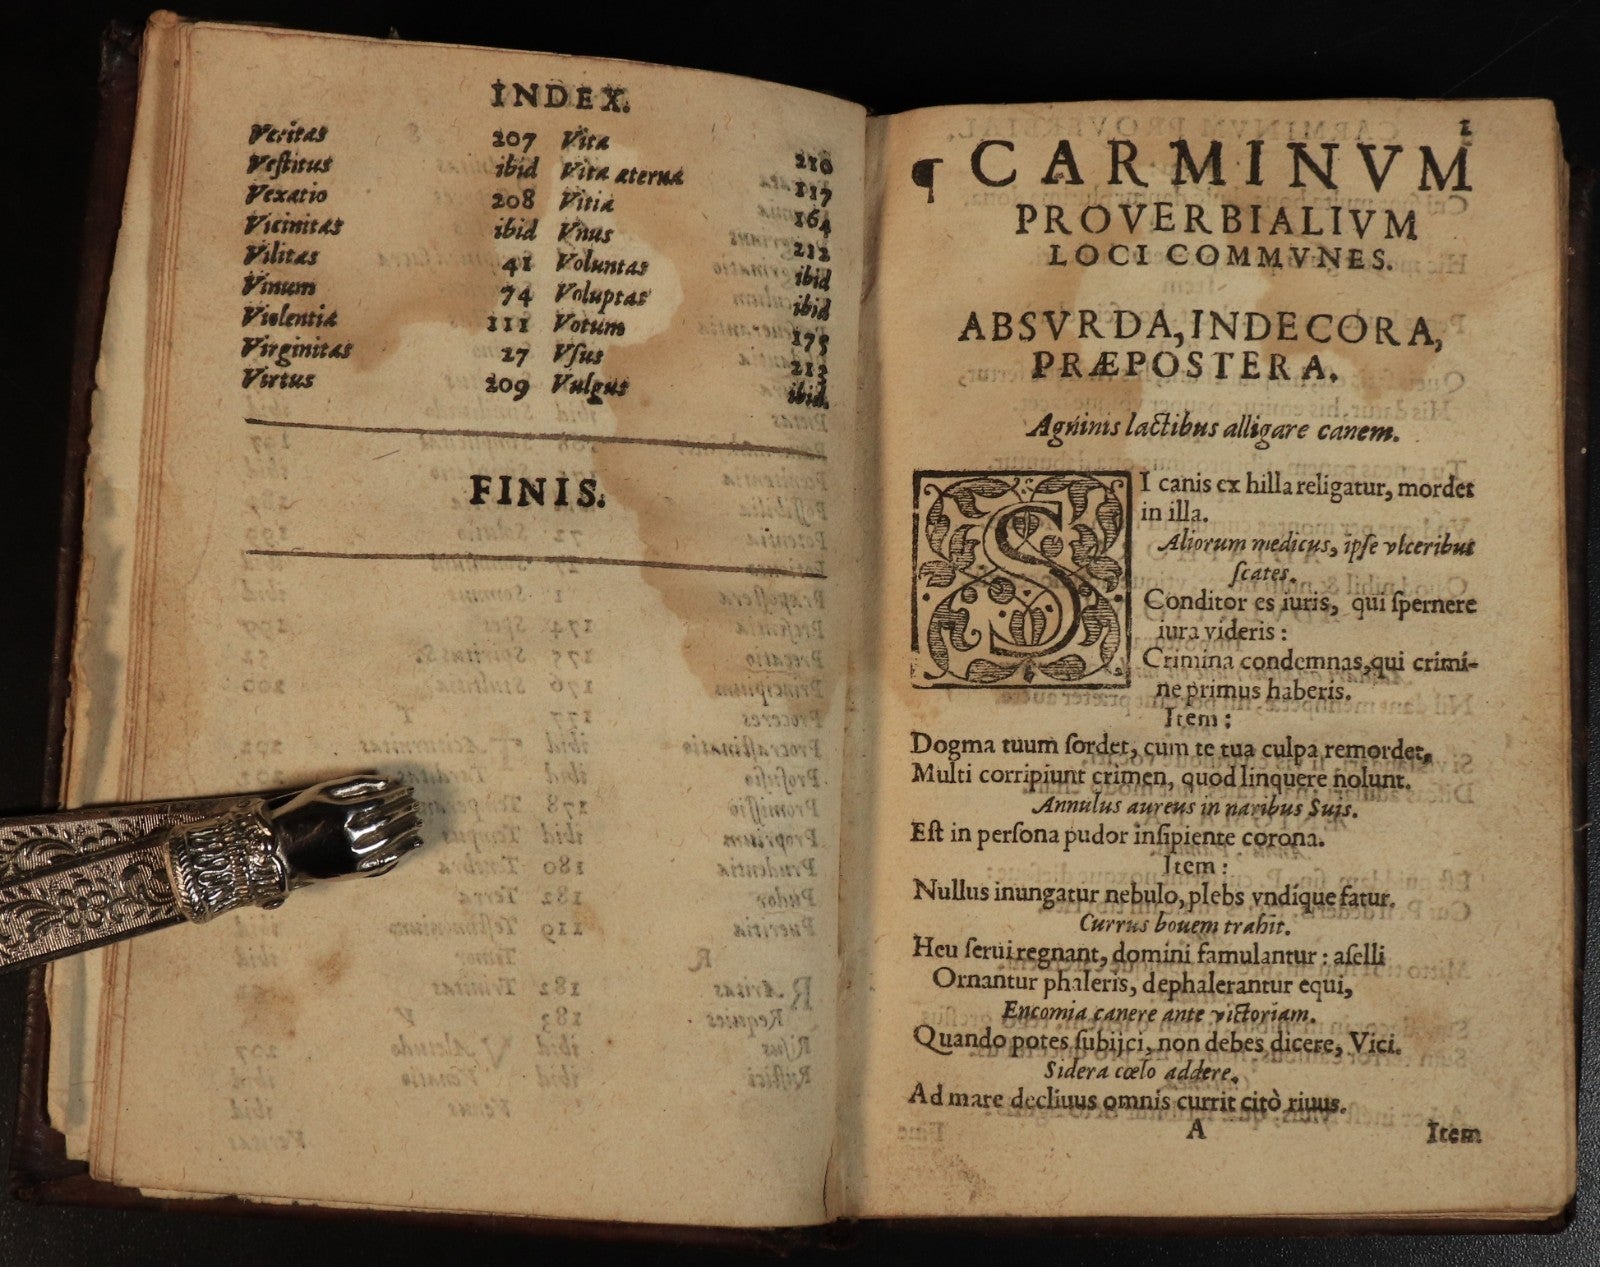 INDEX.
Veritas 207
Vestitus ibid
Vexatio 208
Vicinitas ibid
Vilitas 41
Vinum 74
Violentia 111
Virginitas 27
Virtus 209
Vita 210
Vita æterna 117
Vitia 164
Vnus 212
Voluntas ibid
Voluptas ibid
Votum 175
Vſus 213
Vulgus ibid.
FINIS.
1
¶ CARMINVM
PROVERBIALIVM
LOCI COMMVNES.
ABSVRDA, INDECORA,
PRÆPOSTERA.
Agninis lactibus alligare canem.
SI canis ex hilla religatur, mordet
in illa.
Aliorum medicus, ipſe vlceribus
ſcates.
Conditor es iuris, qui ſpernere
iura videris :
Crimina condemnas, qui crimi-
ne primus haberis.
Item :
Dogma tuum ſordet, cum te tua culpa remordet,
Multi corripiunt crimen, quod linquere nolunt.
Annulus aureus in naribus Suis.
Eſt in perſona pudor inſipiente corona.
Item :
Nullus inungatur nebulo, plebs vndique fatur.
Currus bouem trahit.
Heu ſerui regnant, domini famulantur : aſelli
Ornantur phaleris, dephalerantur equi,
Encomia canere ante victoriam.
Quando potes ſubijci, non debes dicere, Vici.
Sidera cœlo addere.
Ad mare decliuus omnis currit citò riuus.
A Item